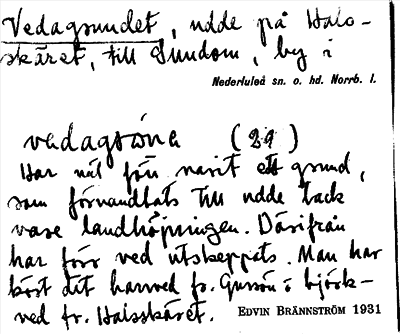 Vedagsundet, udde på Halo-
skäret, till Sundom, by i
Nederluleå sn. o. hd. Norrb. l.
(29)
Har väl förr varit ett grund,
som förvandlats till udde tack
vare landhöjningen. Därifrån
har förr ved utskeppats. Man har
kört dit barrved fr. och björk-
ved fr. Halsskäret. EDVIN BRÄNNSTRÖM 1931